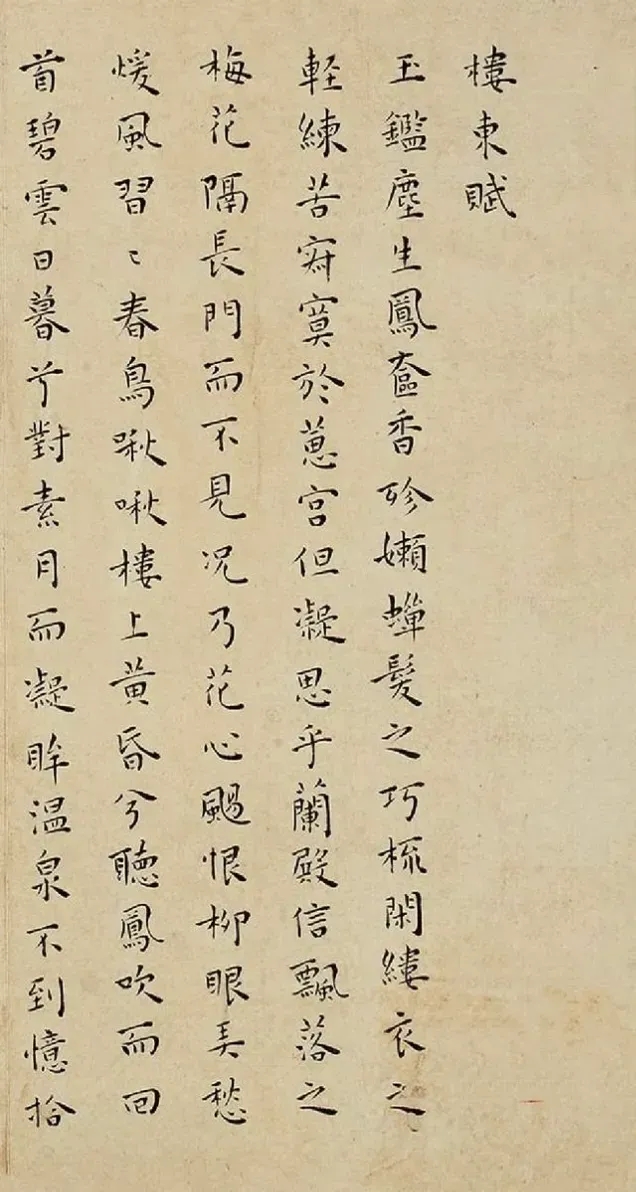 樓東賦
玉鑑塵生鳳奩香殄嬾蟬髮之巧梳閑縷衣之
軽練苦寂寞於蕙宮但凝思乎蘭殿信飄落之
梅花隔長門而不見况乃花心颺恨柳眼弄愁
煖風習〻春鳥啾啾樓上黄昏兮聽鳳吹而回
首碧雲日暮兮對素月而凝眸温泉不到憶拾